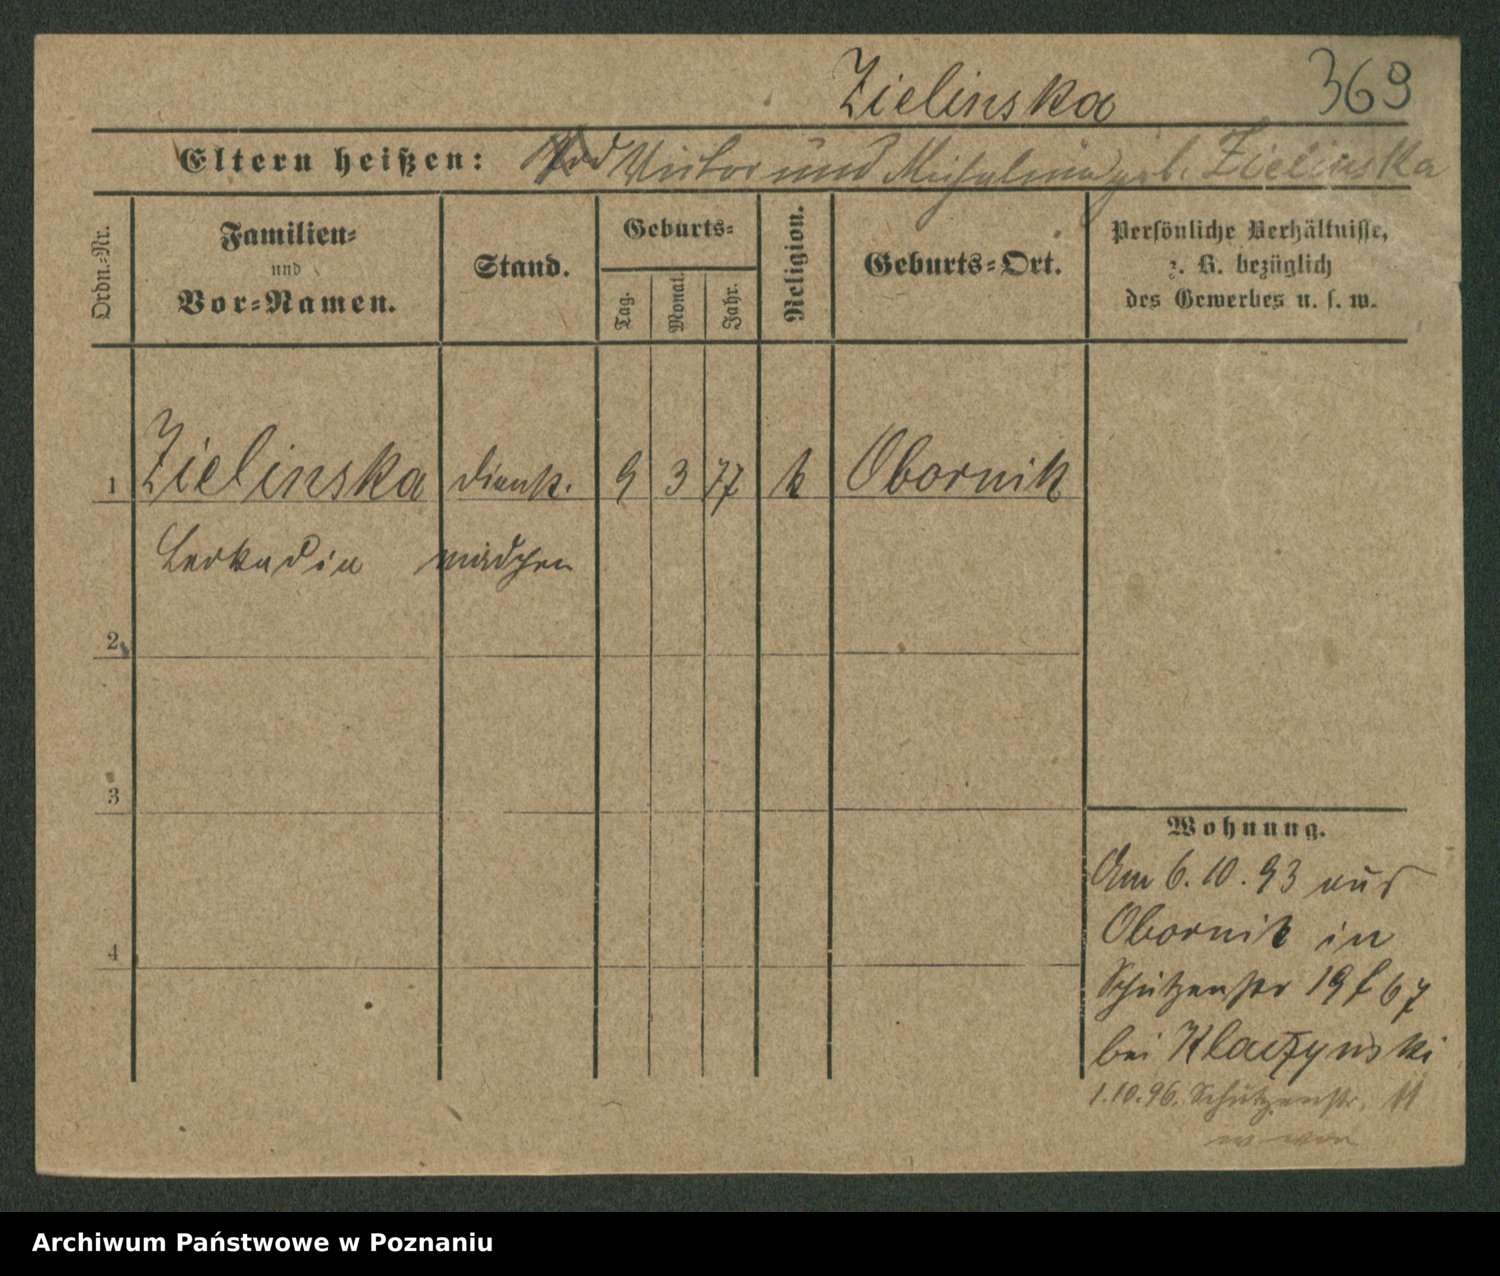 Zielinska 369
Eltern heißen: Victor und Michalina geb. Zielinska
Ordn.-Nr.
Familien-
und
Vor-Namen.
Stand.
Geburts-
Tag.
Monat.
Jahr.
Religion.
Geburts-Ort.
Persönliche Verhältnisse,
z. B. bezüglich
des Gewerbes u. s. w.
1 Zielinska dienst. 9 3 77 k Obornik
Leokadia mädchen
2
3
4
Wohnung.
Am 6.10.93 aus
Obornik in
Schützenstr 19 f 67
bei Klaczynski
1.10.96. Schützenstr. 11
Archiwum Państwowe w Poznaniu